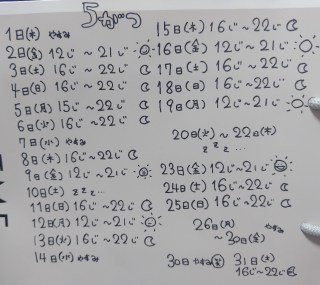 5がつ
1日(木) やすみ
2日(金) 12じ〜21じ
3日(土) 16じ〜22じ
4日(日) 16じ〜22じ
5日(月) 15じ〜22じ
6日(火) 16じ〜22じ
7日(水) やすみ
8日(木) 16じ〜22じ
9日(金) 12じ〜21じ
10日(土) zzz...
11日(日) 16じ〜22じ
12日(月) 12じ〜21じ
13日(火) 16じ〜22じ
14日(水) やすみ
15日(木) 16じ〜22じ
16日(金) 12じ〜21じ
17日(土) 16じ〜22じ
18日(日) 16じ〜22じ
19日(月) 12じ〜21じ
20日(火)〜22日(木)
zzz...
23日(金) 12じ〜21じ
24日(土) 16じ〜22じ
25日(日) 16じ〜22じ
26日(月)
〜30日(金)
30日 やすみ
31日(土)
16じ〜22じ